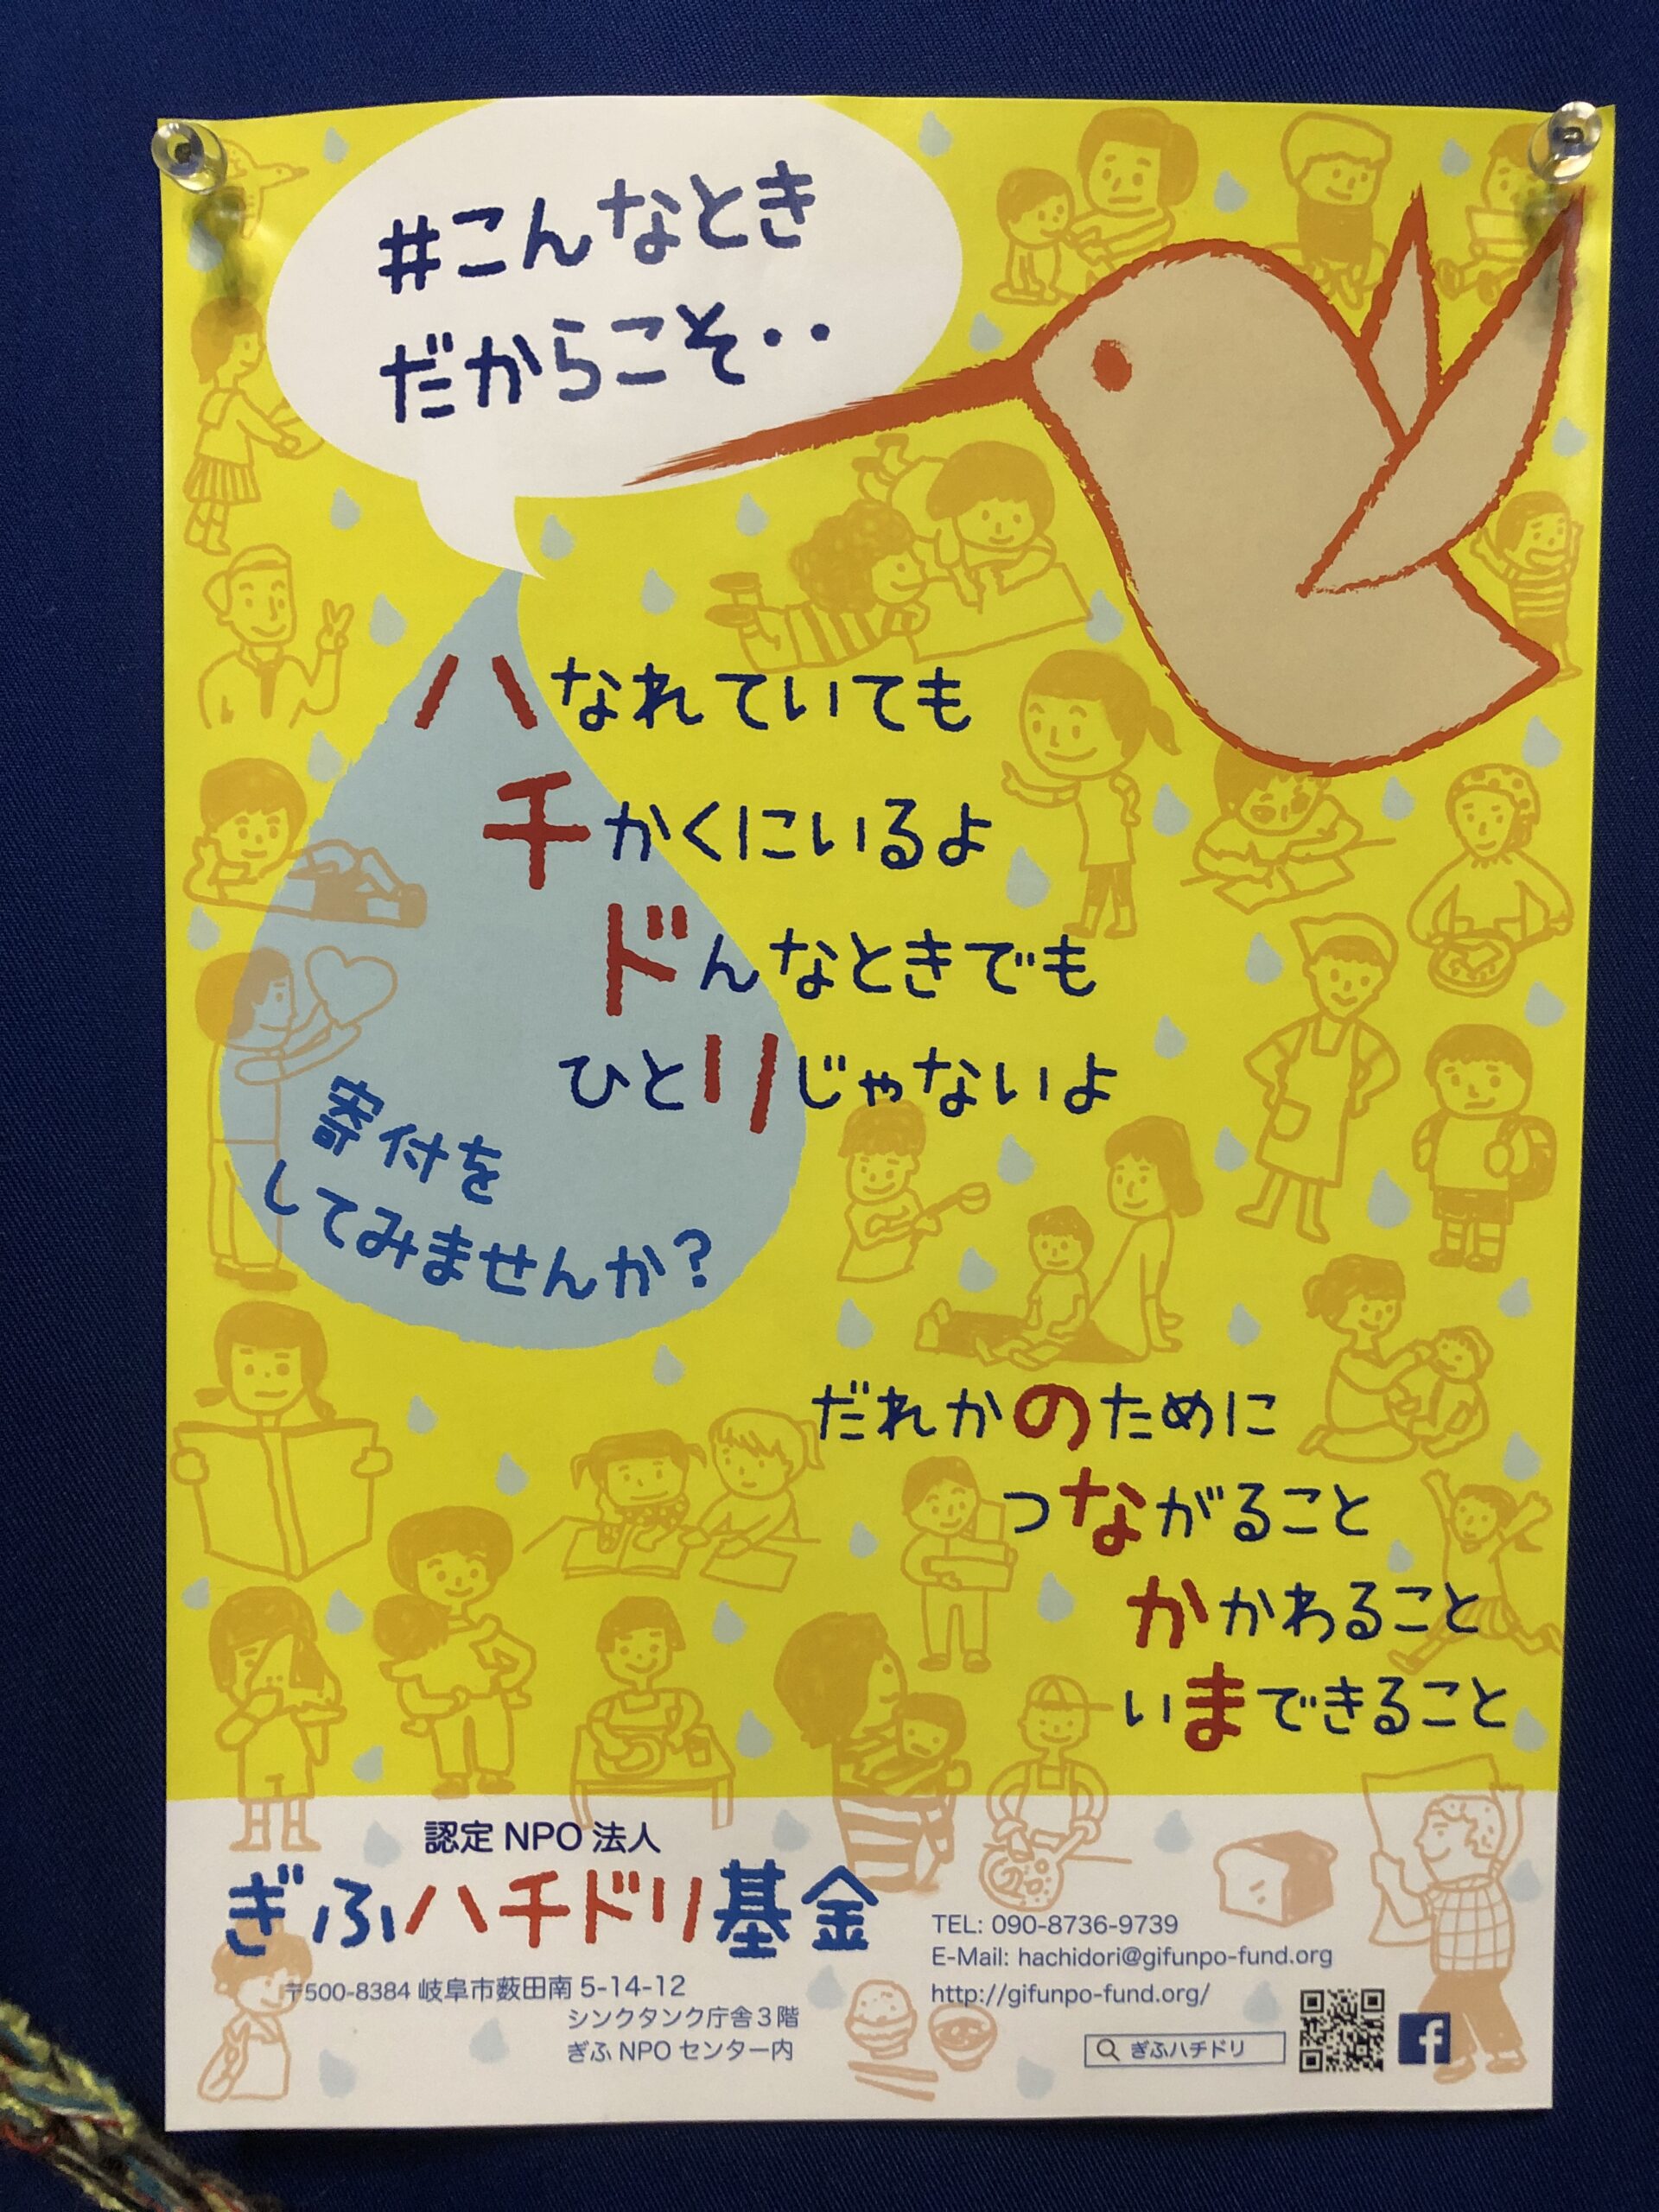 #こんなとき
だからこそ・・
ハなれていても
チかくにいるよ
ドんなときでも
ひとリじゃないよ
寄付を
してみませんか?
だれかのために
つながること
かかわること
いまできること
認定NPO法人
ぎふハチドリ基金
〒500-8384 岐阜市薮田南5-14-12
シンクタンク庁舎3階
ぎふNPOセンター内
TEL: 090-8736-9739
E-Mail: hachidori@gifunpo-fund.org
http://gifunpo-fund.org/
ぎふハチドリ
f